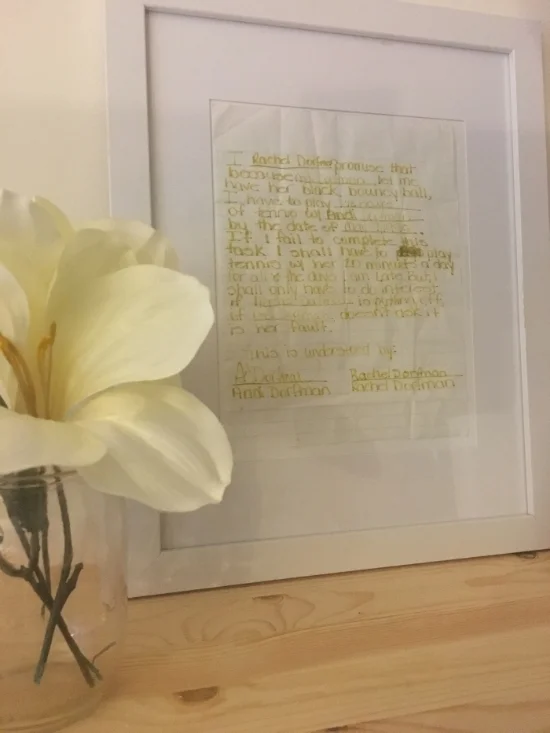 I Rachel Dorfman promise that
because let me
have her black bouncy ball,
I have to play
of tennis w/ Andi
by the date of
If I fail to complete this
task I shall have to play
tennis w/ her 20 minutes a day
for all of the days I am late. But I
shall only have to do interest
if
if doesn't ask it
is her fault.
This is understood by:
Rachel Dorfman
Andi Dorfman Rachel Dorfman